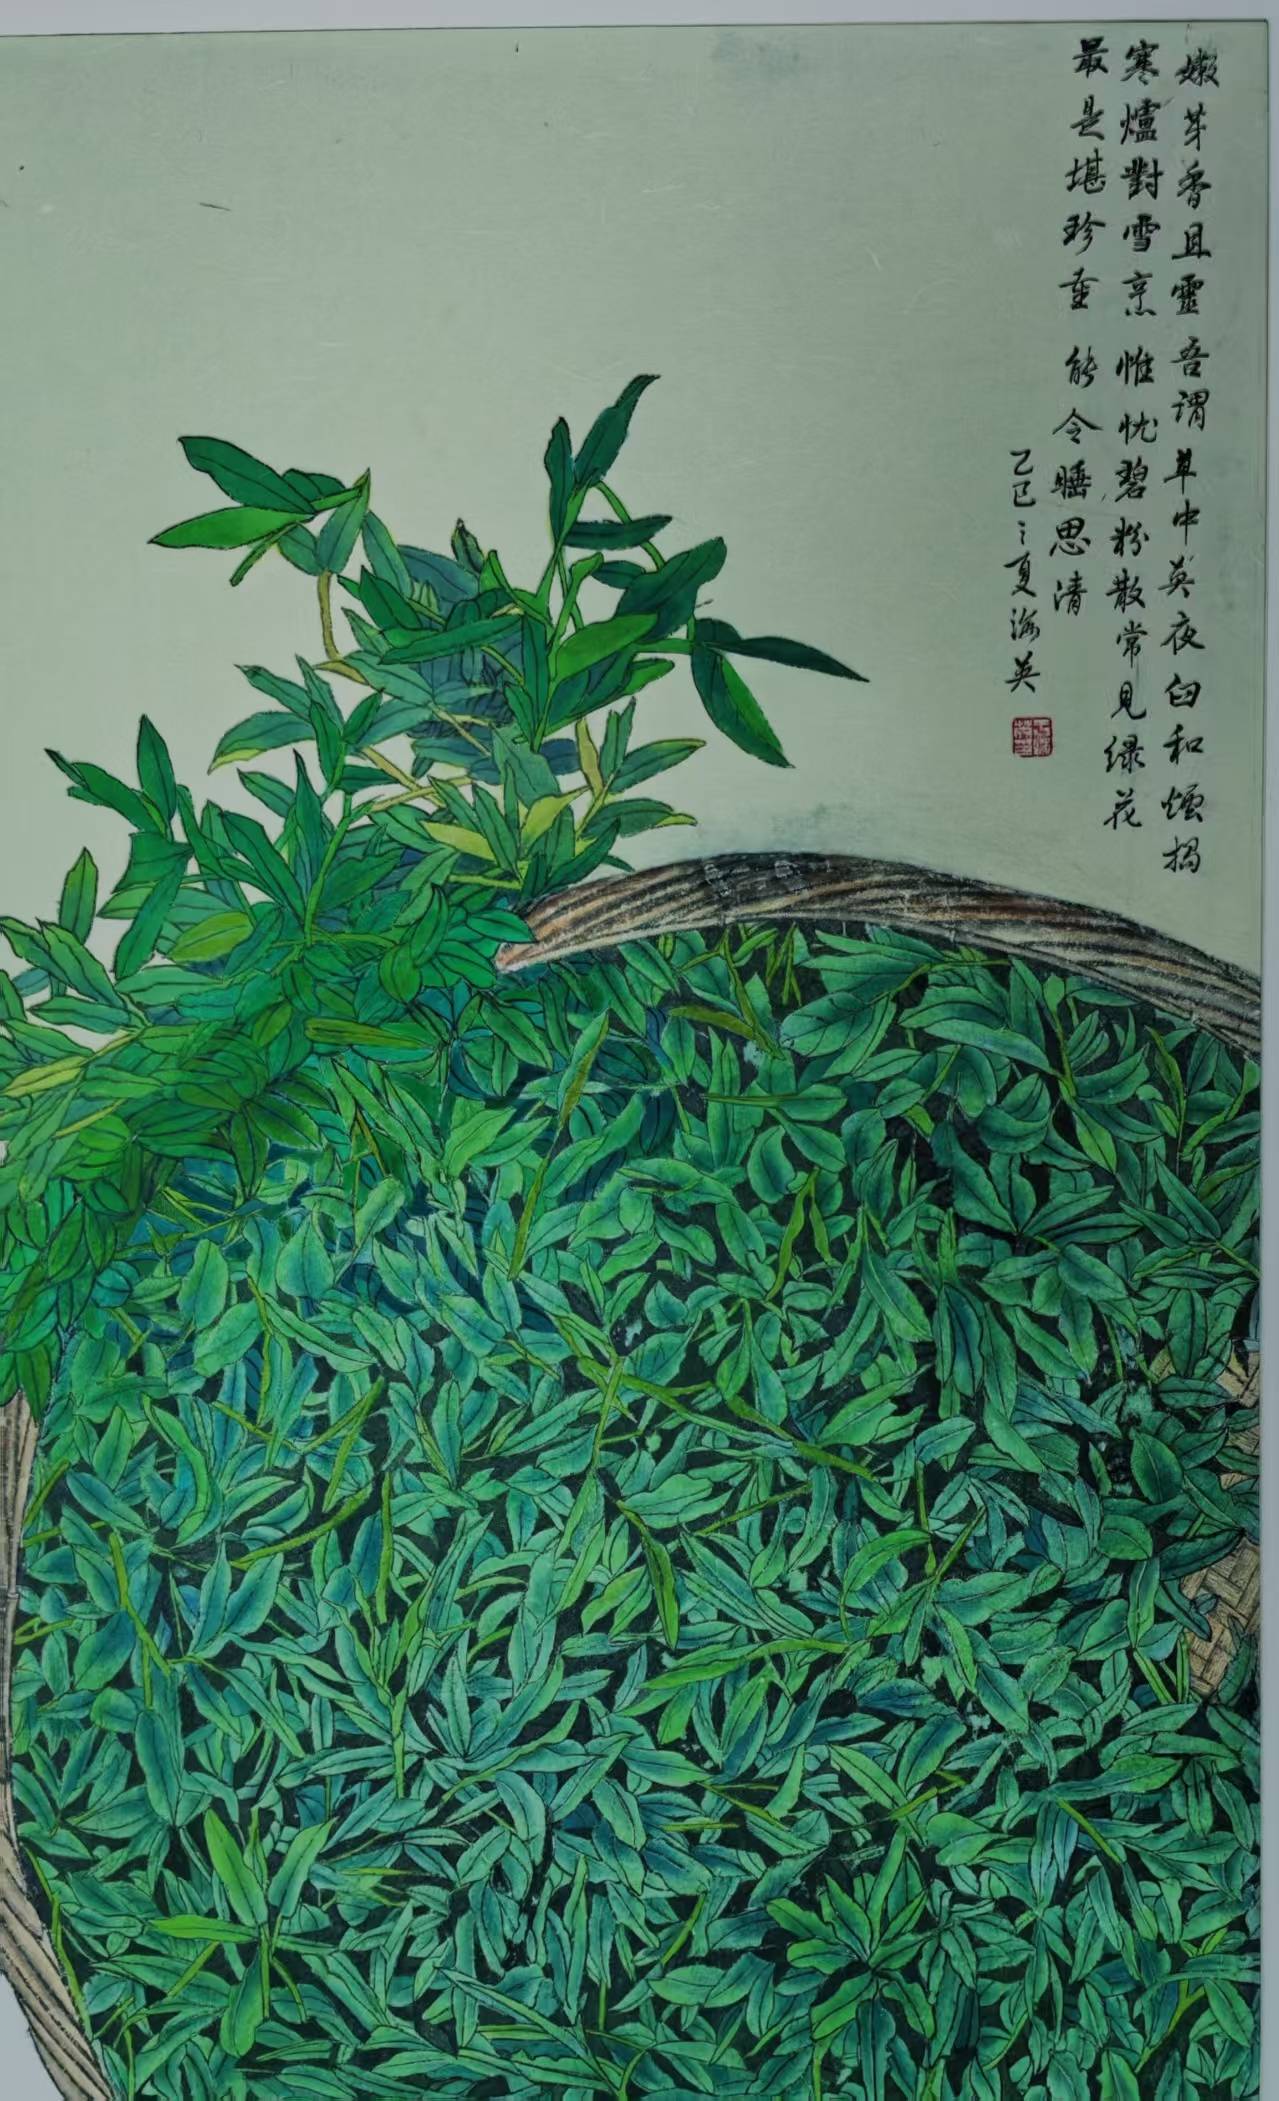 嫩芽香且靈吾謂草中英夜臼和煙搗
寒爐對雪烹惟忧碧粉散常見绿花
最是堪珍重能令睡思清
乙巳之夏海英